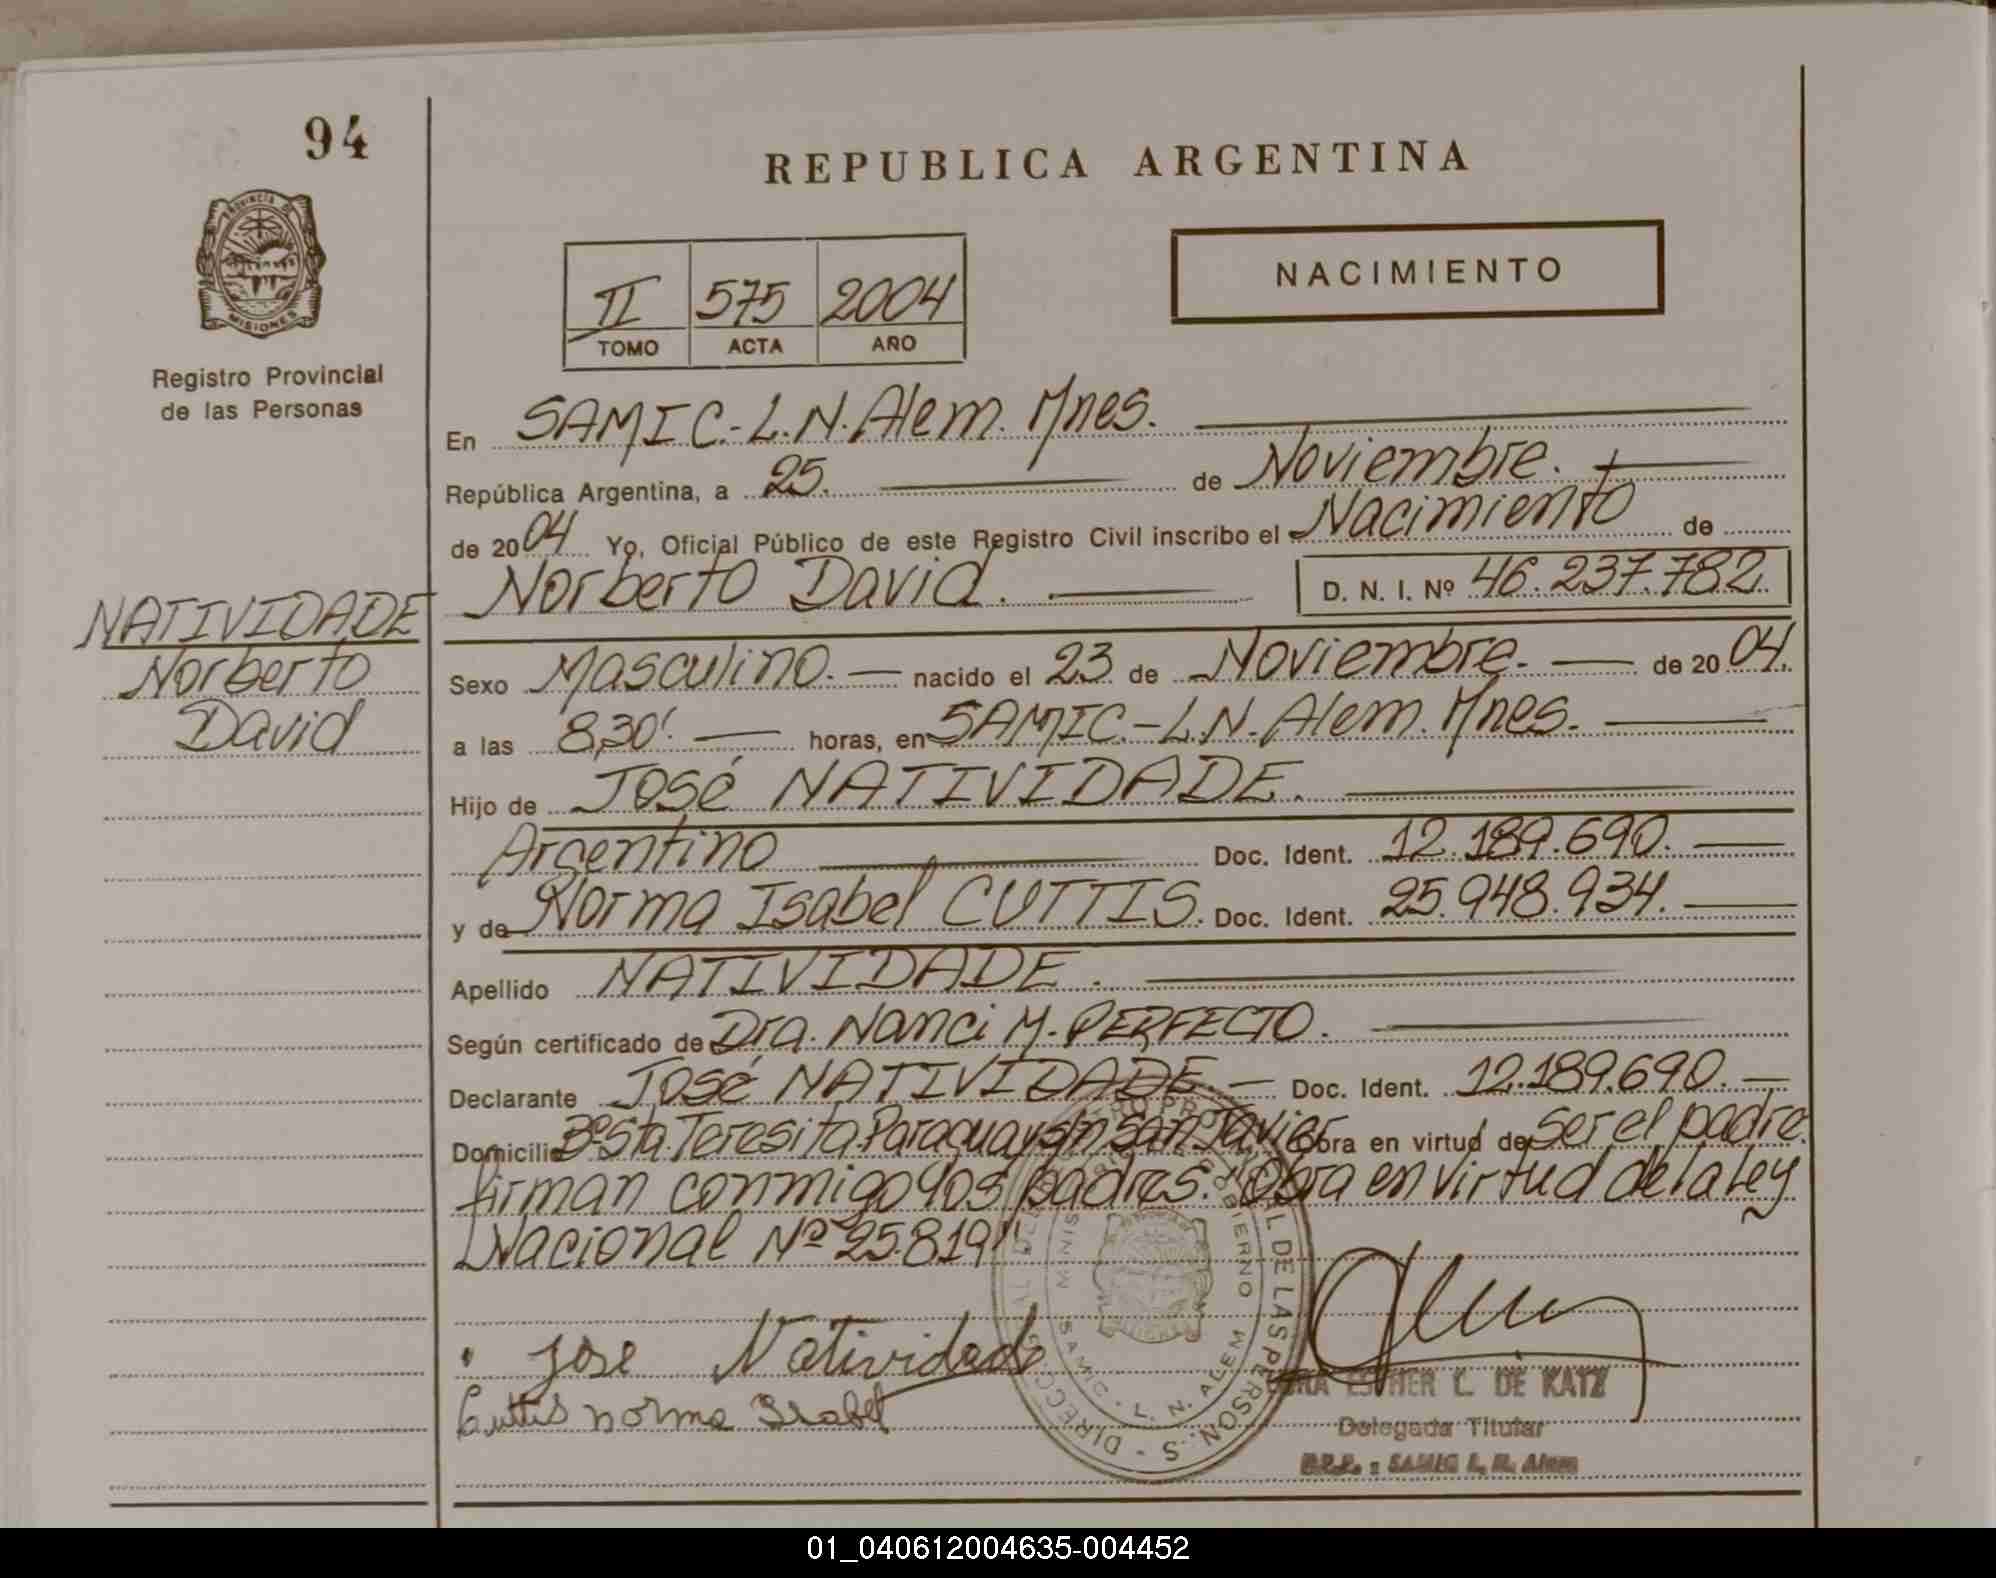 94
REPUBLICA ARGENTINA
PROVINCIA DE
MISIONES
Registro Provincial
de las Personas
II 575 2004
TOMO ACTA AÑO
NACIMIENTO
En SAMIC.-L.N.Alem. Mnes.
República Argentina, a 25. de Noviembre.
de 2004 Yo, Oficial Público de este Registro Civil inscribo el Nacimiento de
Norberto David. D. N. I. Nº 46.237.782.
NATIVIDADE
Norberto
David
Sexo Masculino. nacido el 23 de Noviembre. de 2004.
a las 8,30'. horas, en SAMIC.-L.N.Alem. Mnes.
Hijo de José NATIVIDADE.
Argentino Doc. Ident. 12.189.690.
y de Norma Isabel CUTTIS. Doc. Ident. 25.948.934.
Apellido NATIVIDADE.
Según certificado de Dra. Nanci M. PERFECTO.
Declarante José NATIVIDADE. Doc. Ident. 12.189.690.
Domicilio Bº Sta. Teresita. Paraguay s/n San Javier Obra en virtud de ser el padre.
firman conmigo los padres. "Obra en virtud de la Ley
Nacional Nº 25.819"
Jose Natividade
Cuttis norma Isabel
ESTHER L. DE KATZ
Delegada Titular
SAMIC L. N. Alem
SAMIC. L. N. ALEM
01_040612004635-004452